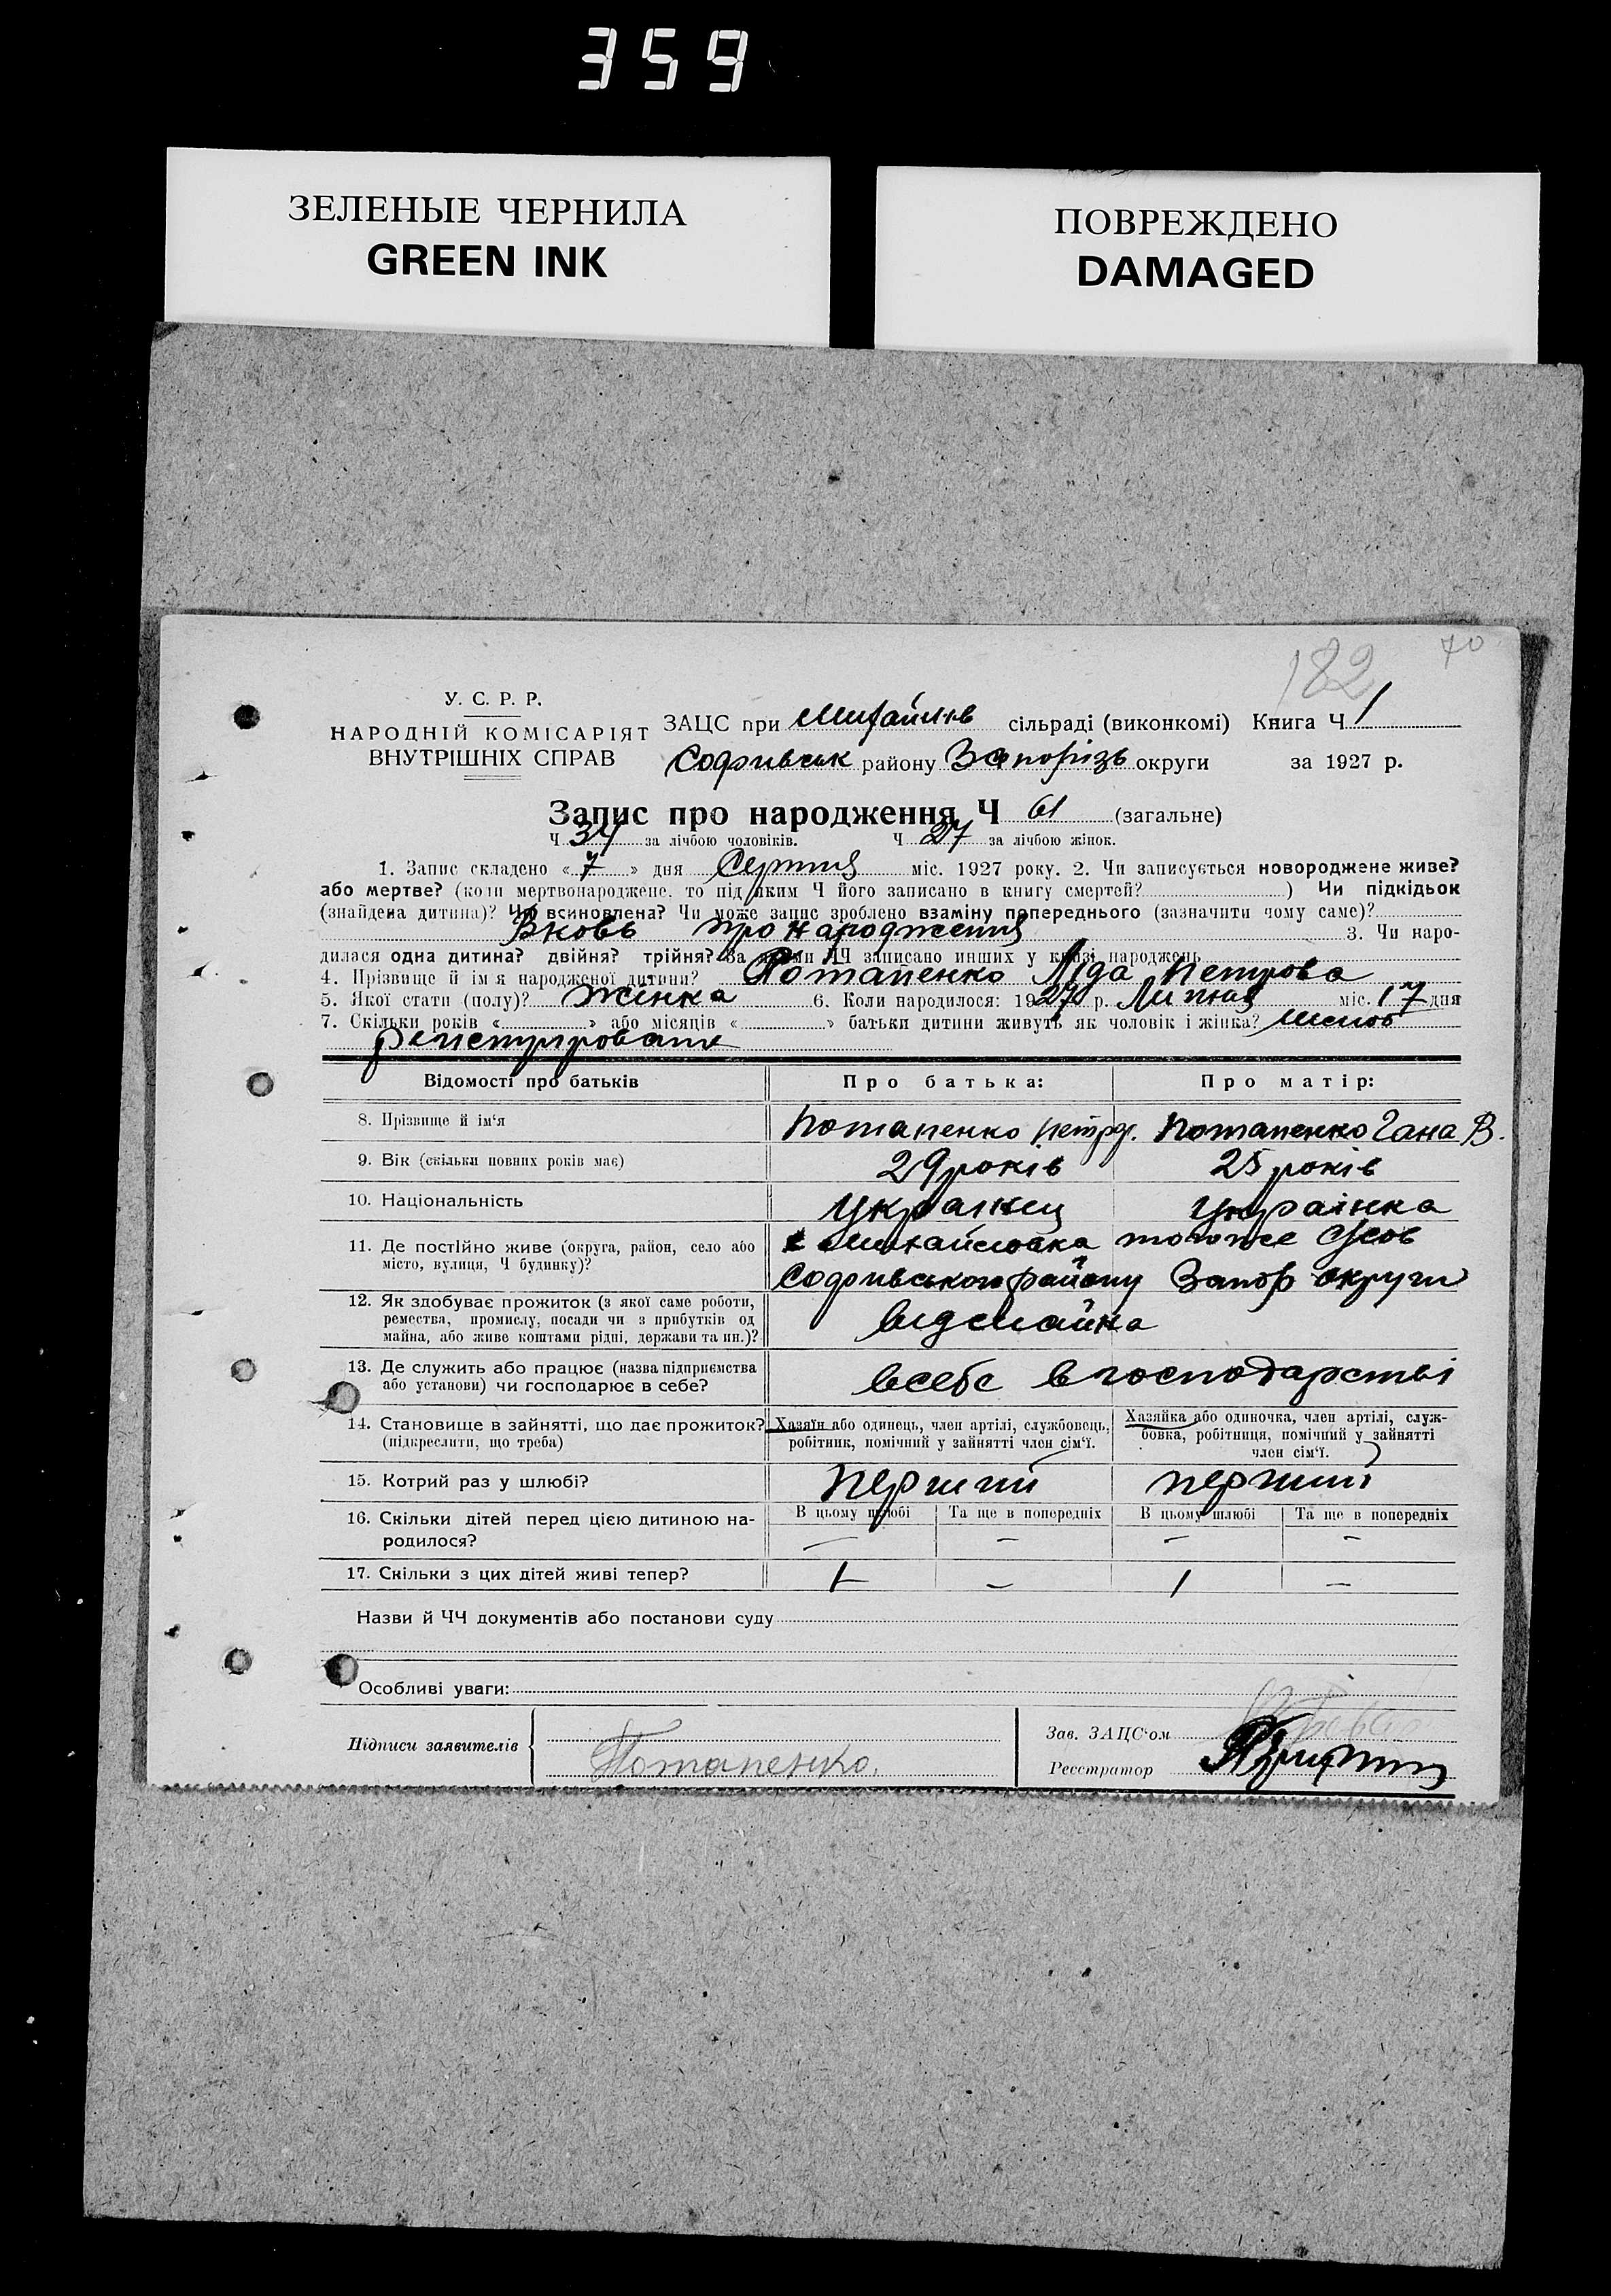 359
ЗЕЛЕНЫЕ ЧЕРНИЛА
GREEN INK
ПОВРЕЖДЕНО
DAMAGED
182 70
У. С. Р. Р.
НАРОДНІЙ КОМІСАРІЯТ
ВНУТРІШНІХ СПРАВ
ЗАЦС при Михайлів сільраді (виконкомі) Книга Ч 1
Софиивськ району Запорізь округи за 1927 р.
Запис про народження Ч 61 (загальне)
Ч 34 за лічбою чоловіків. Ч 27 за лічбою жінок.
1. Запис складено « 7 » дня Серпня міс. 1927 року. 2. Чи записується новороджене живе?
або мертве? (коли мертвонароджене, то під яким Ч його записано в книгу смертей? ) Чи підкідьок
(знайдена дитина)? Чи всиновлена? Чи може запис зроблено взаміну попереднього (зазначити чому саме)?
Вновь про народження 3. Чи наро-
дилася одна дитина? двійня? трійня? За якими ЧЧ записано инших у книзі народжень
4. Прізвище й ім'я народженої дитини? Потапенко Ліда Петрова
5. Якої стати (полу)? Жінка 6. Коли народилося: 1927 р. Липня міс. 17 дня
7. Скільки років « » або місяців « » батьки дитини живуть як чоловік і жінка?
Відомості про батьків Про батька: Про матір:
8. Прізвище й ім'я Потапенко Петро Потапенко Гана В.
9. Вік (скільки повних років має) 29 років 25 років
10. Національність Українец Українка
11. Де постійно живе (округа, район, село або
місто, вулиця, Ч будинку)?
Михайловка
Софиивського району Запор округи
12. Як здобуває прожиток (з якої саме роботи,
ремества, промислу, посади чи з прибутків од
майна, або живе коштами рідні, держави та ин.)?
від майна
13. Де служить або працює (назва підприємства
або установи) чи господарює в себе?
всебе в господарстві
14. Становище в зайнятті, що дає прожиток?
(підкреслити, що треба)
Хазяїн або одинець, член артілі, службовець,
робітник, помічний у зайнятті член сім'ї.
Хазяйка або одиночка, член артілі, служ-
бовка, робітниця, помічний у зайнятті
член сім'ї.
15. Котрий раз у шлюбі? перший перший
16. Скільки дітей перед цією дитиною на-
родилося?
В цьому шлюбі Та ще в попередніх В цьому шлюбі Та ще в попередніх
— — — —
17. Скільки з цих дітей живі тепер? 1 — 1 —
Назви й ЧЧ документів або постанови суду
Особливі уваги:
Підписи заявителів
Потапенко.
Зав. ЗАЦС'ом
Реєстратор